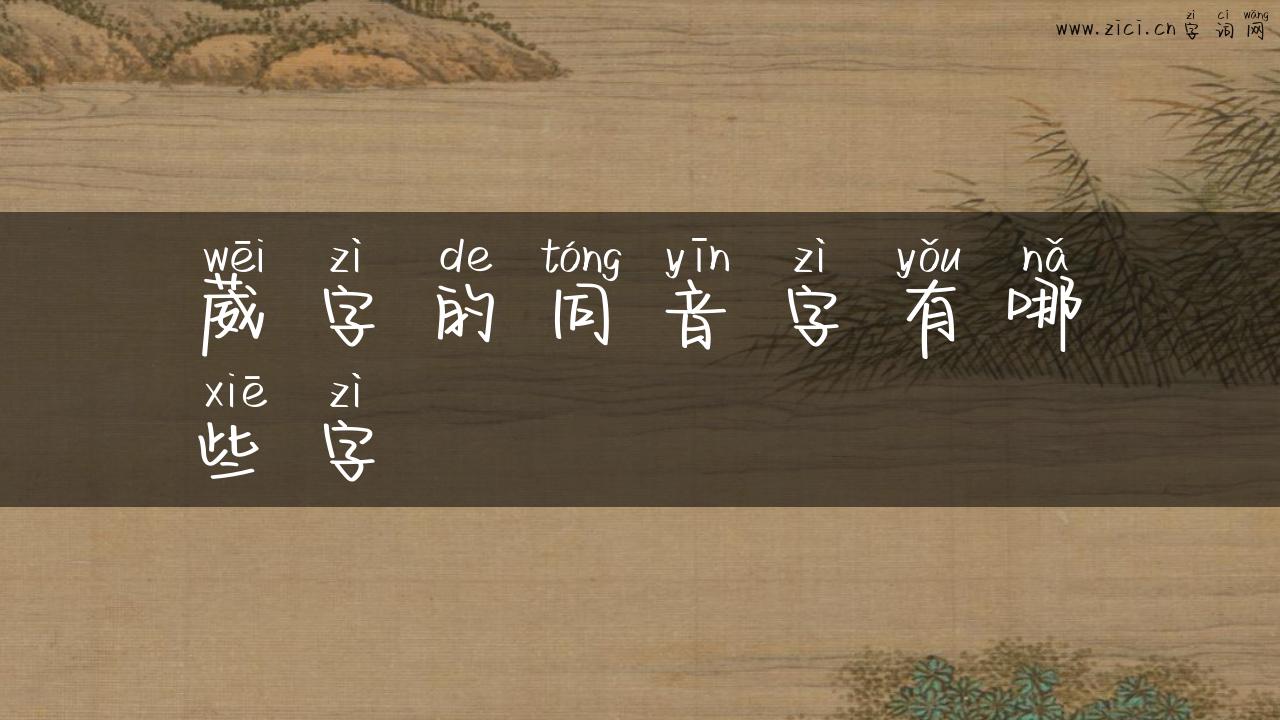 zì cí wǎng
www.zici.cn 字词网
wēi zì de tóng yīn zì yǒu nǎ
葳字的同音字有哪
xiē zì
些字